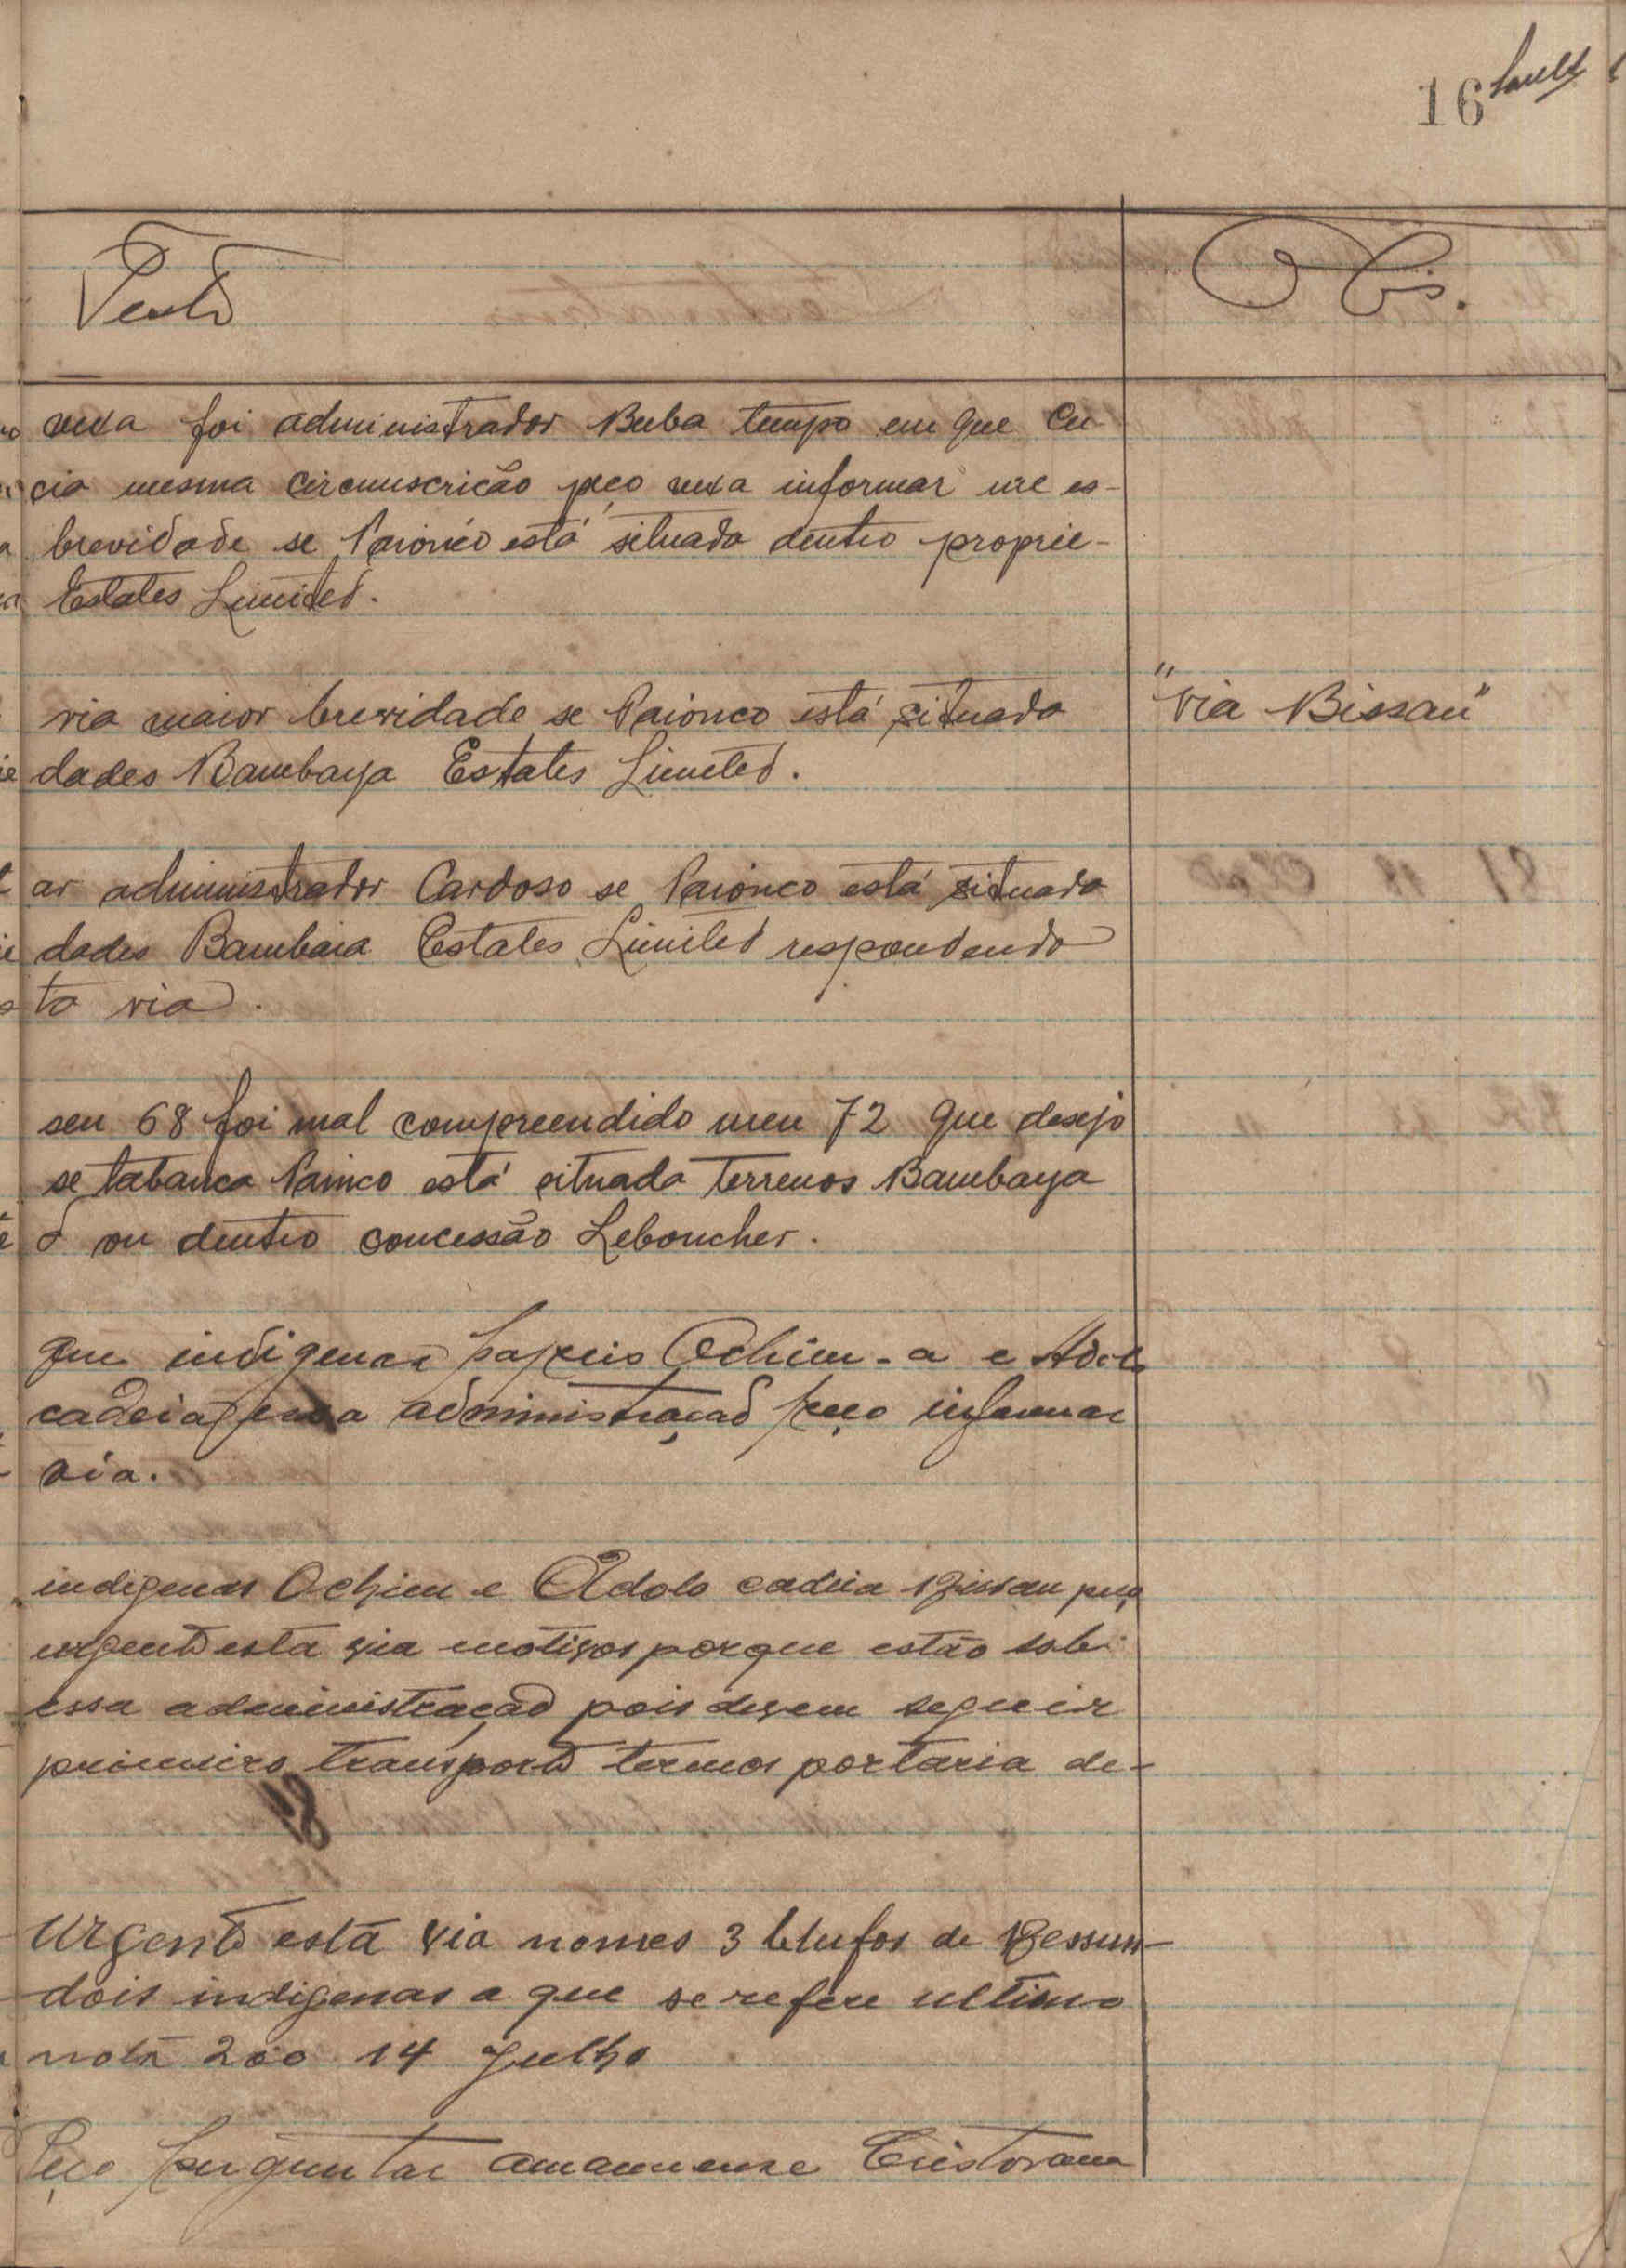 16
Texto
Obs.
vexa foi administrador Buba tempo em que
cia mesma circumscrição peço vexa informar me es-
brevidade se Paionco está situada dentro proprie-
Estates Limited.
via maior brevidade se Paionco está situada
"via Bissau"
dades Bambaya Estates Limited.
ar administrador Cardoso se Paionco está situada
dades Bambaia Estates Limited respondendo
ta via.
seu 68 foi mal compreendido meu 72 que desejo
se tabanca Painco está situada terrenos Bambaya
d ou dentro concessão Leboucher.
que indigenas papeis Ochim-a e
cadeia administração peço informar
via.
indigenas Ochim e Adolo cadeia Bissau peço
urgente esta via motivos porque estão sob
essa administração pois devem seguir
primeiro transporte termos portaria de-
Urgente esta via nomes 3 de Bessun-
dois indigenas a que se refere ultimo
nota 200 14 Julho
Peço perguntar amanuense